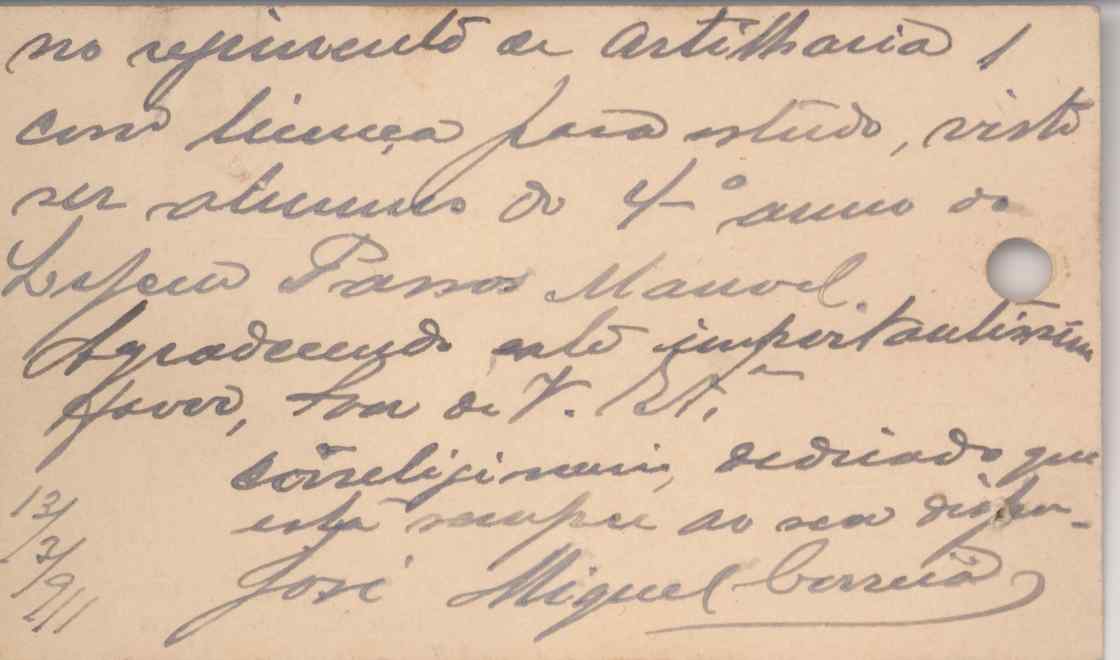 no regimento de Artilharia 1
com licença para estudo, visto
ser alumno do 4º anno do
Lyceu Passos Manoel.
Agradecendo este importantissimo
favor, sou de V. Ex.ª
correligionario, dedicado que
está sempre ao seu dispôr -
José Miguel Correia
13/3/911